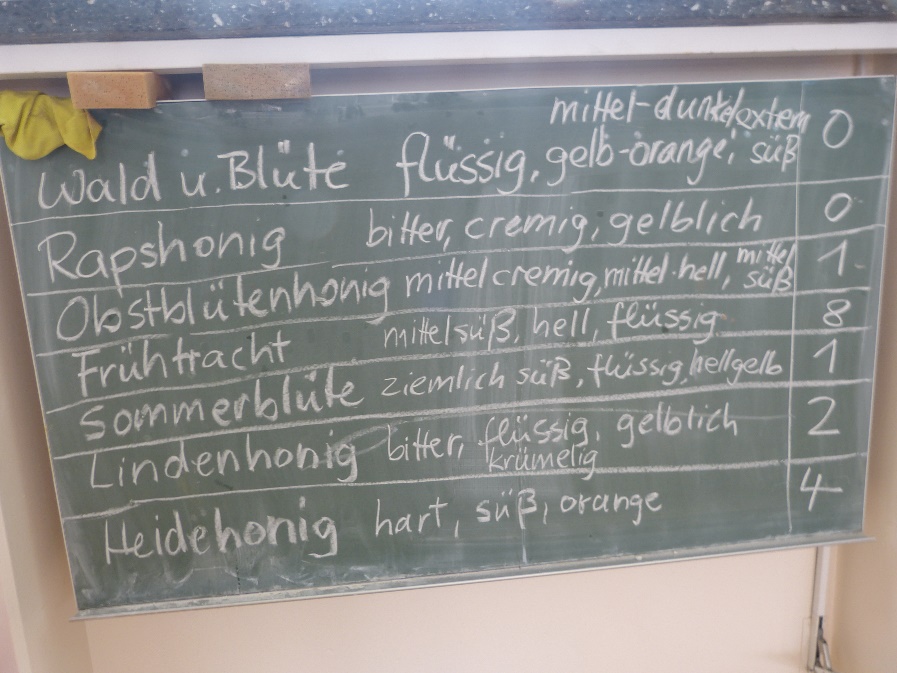 mittel-dunkel extrem
Wald u. Blüte flüssig, gelb-orange, süß 0
Rapshonig bitter, cremig, gelblich 0
Obstblütenhonig mittel cremig, mittel-hell, mittel süß 1
Frühtracht mittel süß, hell, flüssig 8
Sommerblüte ziemlich süß, flüssig, hellgelb 1
Lindenhonig bitter, flüssig, gelblich 2
krümelig
Heidehonig hart, süß, orange 4